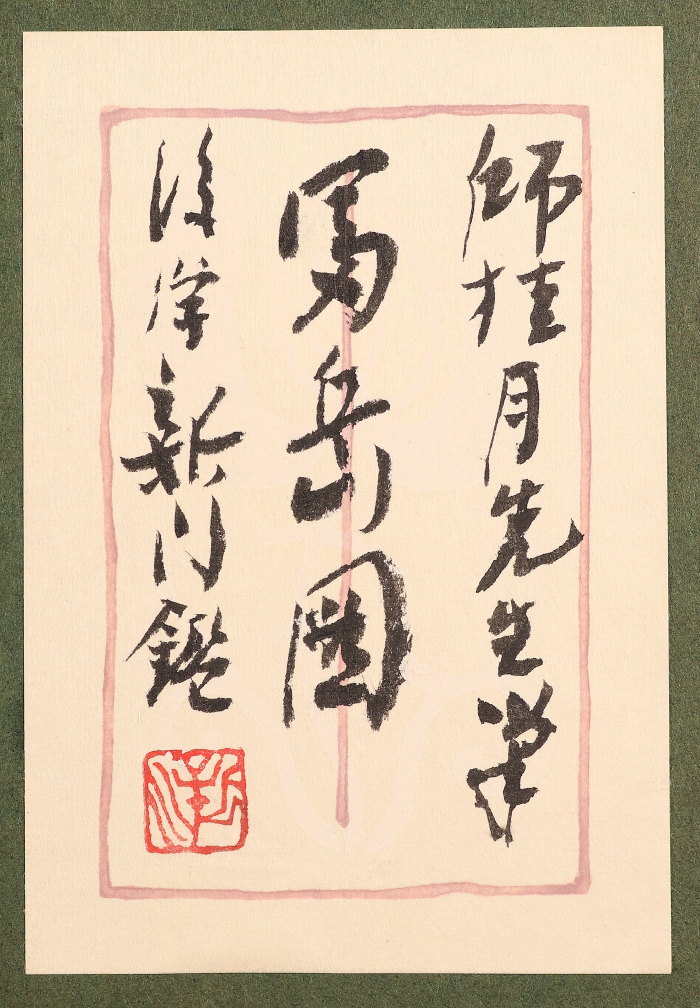 師桂月先生筆
冨岳圖
後学新川鑑